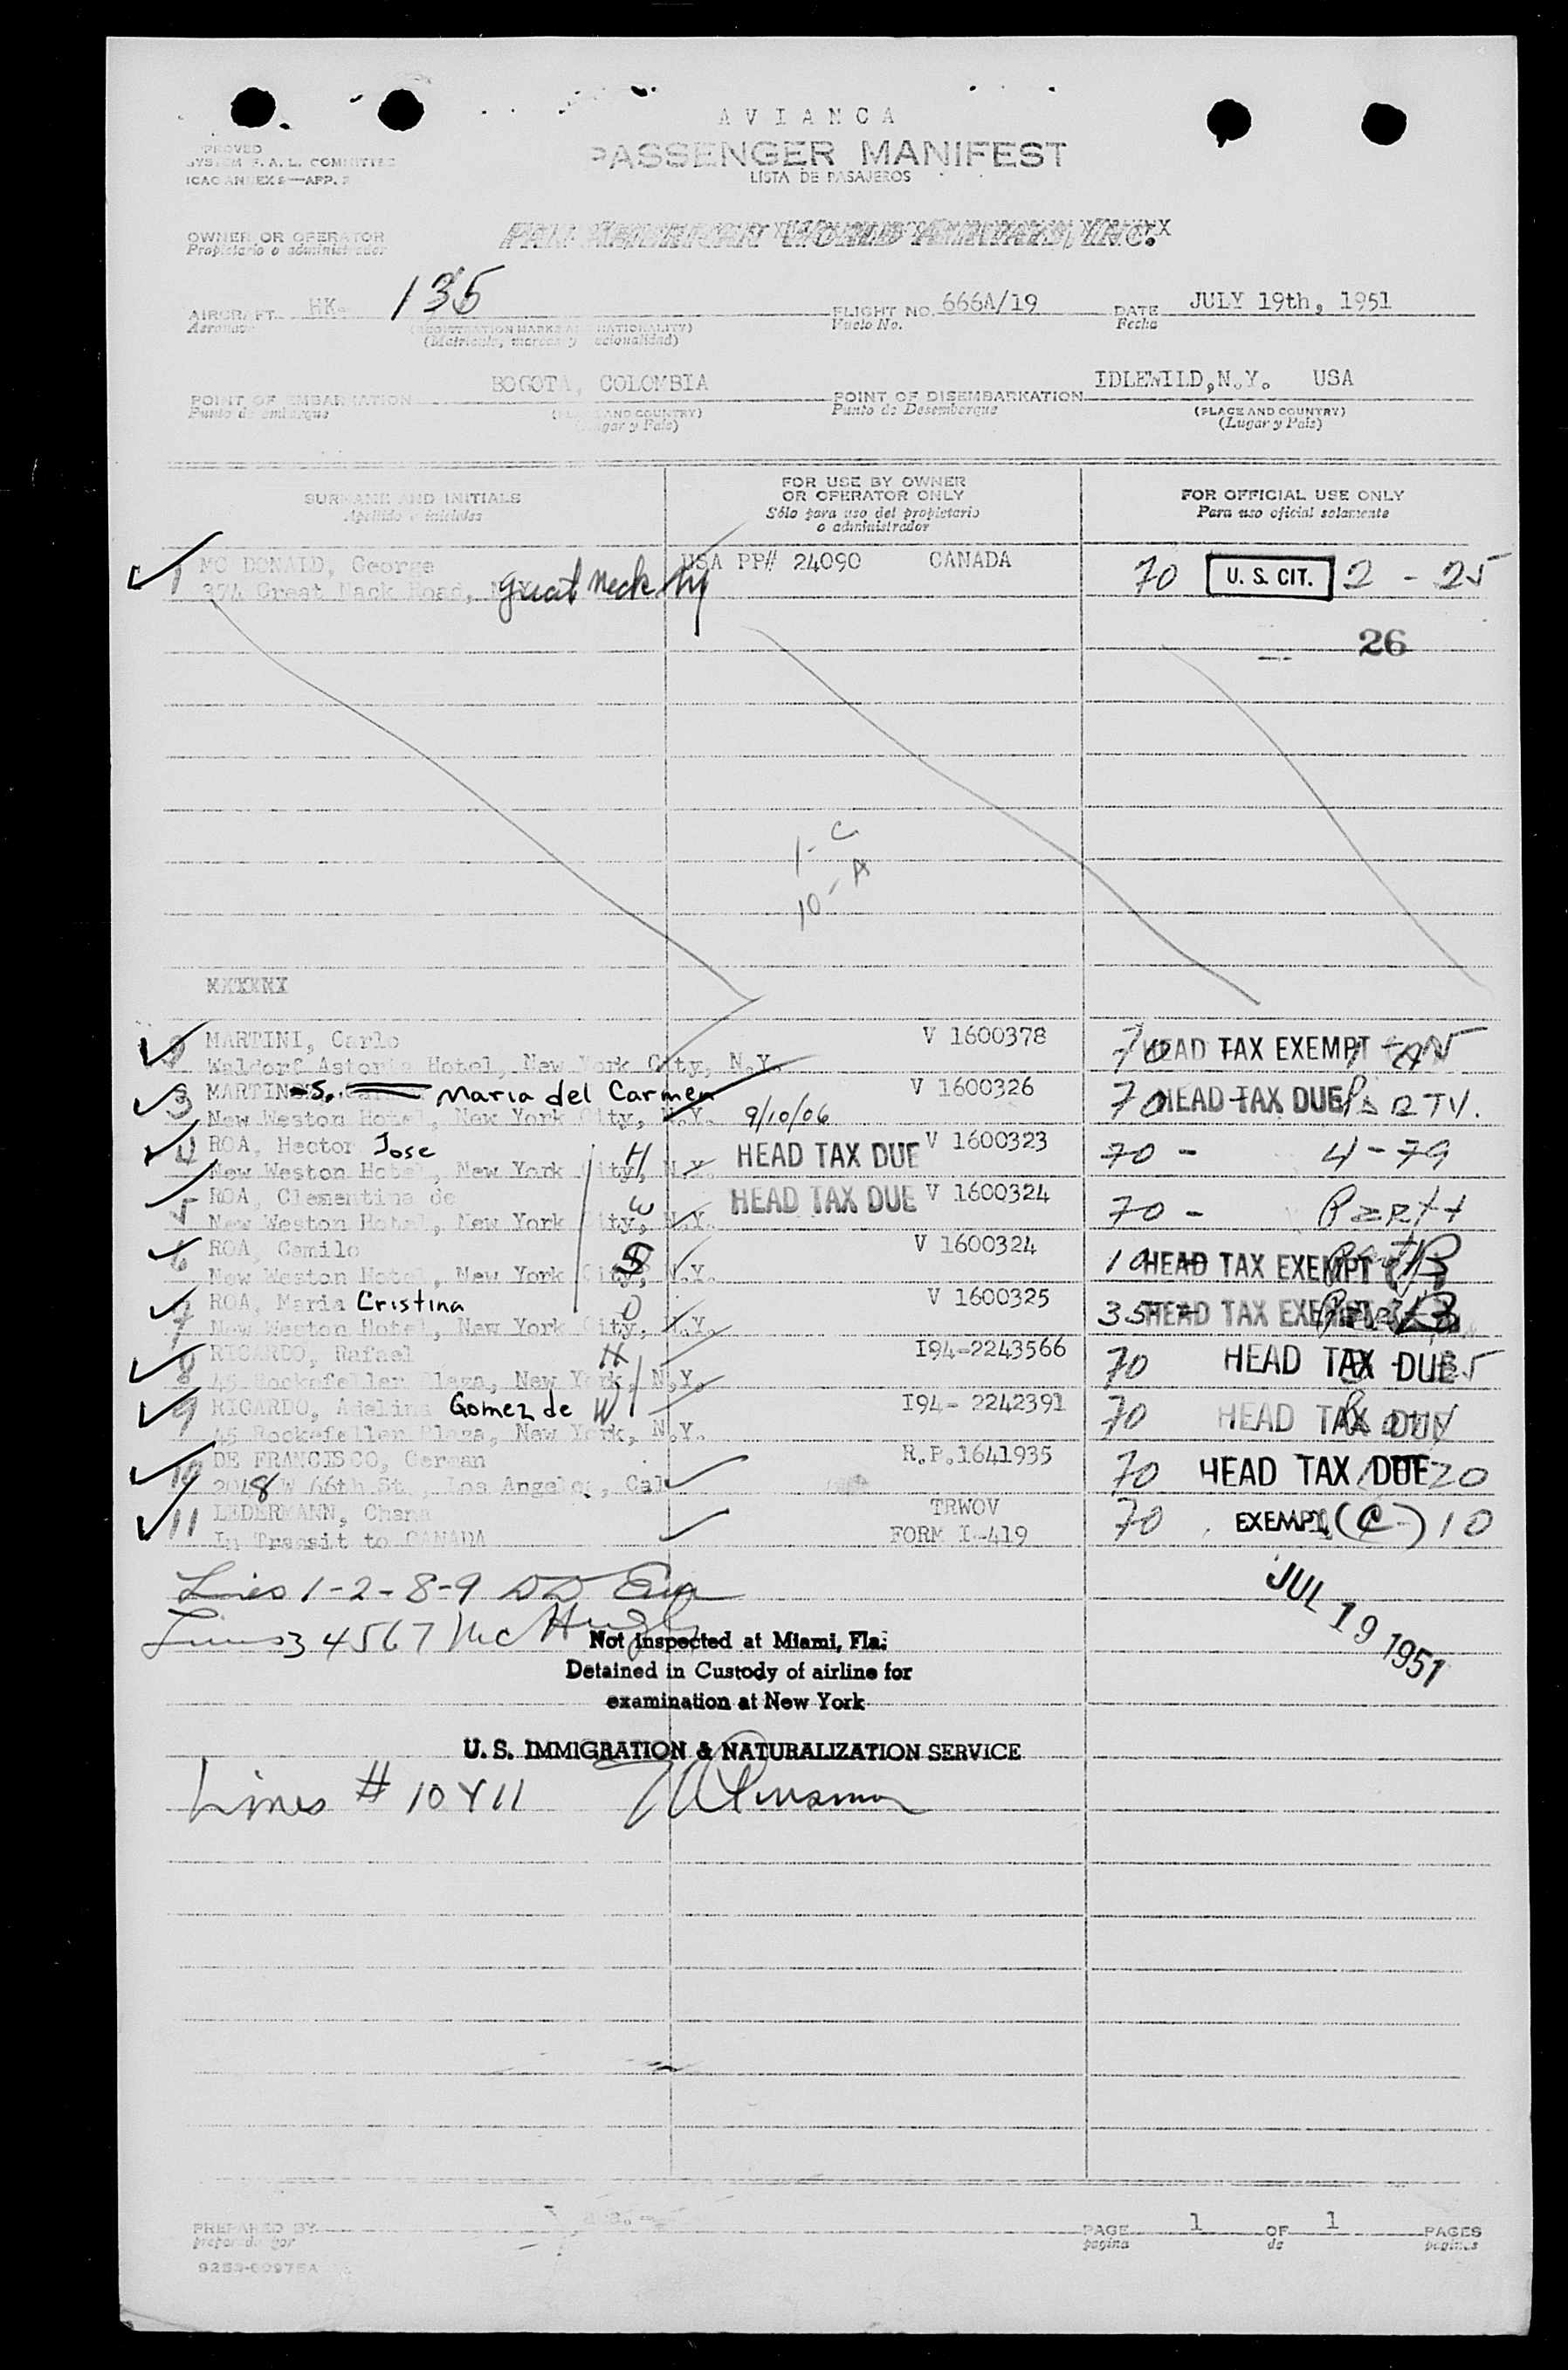 AVIANCA
PASSENGER MANIFEST
LISTA DE PASAJEROS
PROVED
SYSTEM F.A.L. COMMITTEE
ICAO ANNEX 9—APP. 
OWNER OR OPERATOR
Propietario o administrador
PAN AMERICAN WORLD AIRWAYS, INC.
AIRCRAFT HK- 135 FLIGHT NO. 666A/19 DATE JULY 19th, 1951
Aeronave (REGISTRATION MARKS AND NATIONALITY) Vuelo No. Fecha
(Matricula, marcas y nacionalidad)
POINT OF EMBARKATION BOGOTA, COLOMBIA POINT OF DISEMBARKATION IDLEWILD,N.Y. USA
Punto de embarque (PLACE AND COUNTRY) Punto de Desembarque (PLACE AND COUNTRY)
(Lugar y País) (Lugar y País)
SURNAME AND INITIALS FOR USE BY OWNER OR OPERATOR ONLY FOR OFFICIAL USE ONLY
Apellido e iniciales Sólo para uso del propietario o administrador Para uso oficial solamente
1 MC DONALD, George USA PP# 24090 CANADA 70 U. S. CIT. 2 - 25
374 Great Neck Road, Great Neck NY
26
1-C
10-A
MXXXXX
2 MARTINI, Carlo V 1600378 70 HEAD TAX EXEMPT
Waldorf Astoria Hotel, New York City, N.Y.
3 MARTINES, Maria del Carmen V 1600326 70 HEAD TAX DUE
New Weston Hotel, New York City, N.Y. 9/10/06
4 ROA, Hector Jose H HEAD TAX DUE V 1600323 70 - 4-79
New Weston Hotel, New York City, N.Y.
5 ROA, Clementina de W HEAD TAX DUE V 1600324 70 -
New Weston Hotel, New York City, N.Y.
6 ROA, Camilo S V 1600324 10 HEAD TAX EXEMPT
New Weston Hotel, New York City, N.Y.
7 ROA, Maria Cristina D V 1600325 35 HEAD TAX EXEMPT
New Weston Hotel, New York City, N.Y.
8 RICARDO, Rafael H I94-2243566 70 HEAD TAX DUE
45 Rockefeller Plaza, New York, N.Y.
9 RICARDO, Adelina Gomez de W I94- 2242391 70 HEAD TAX DUE
45 Rockefeller Plaza, New York, N.Y.
10 DE FRANCISCO, German R.P.1641935 70 HEAD TAX DUE 20
2048 W 66th St., Los Angeles, Cal
11 LEDERMANN, Chana TRWOV 70 EXEMPT (C-) 10
In Transit to CANADA FORM I-419
JUL 19 1951
Lines 1-2-8-9
Lines 3 4567 McHugh
Not inspected at Miami, Fla.
Detained in Custody of airline for
examination at New York
U. S. IMMIGRATION & NATURALIZATION SERVICE
Lines # 10 Y 11
PREPARED BY PAGE 1 OF 1 PAGES
preparado por pagina de paginas
9253-00975A